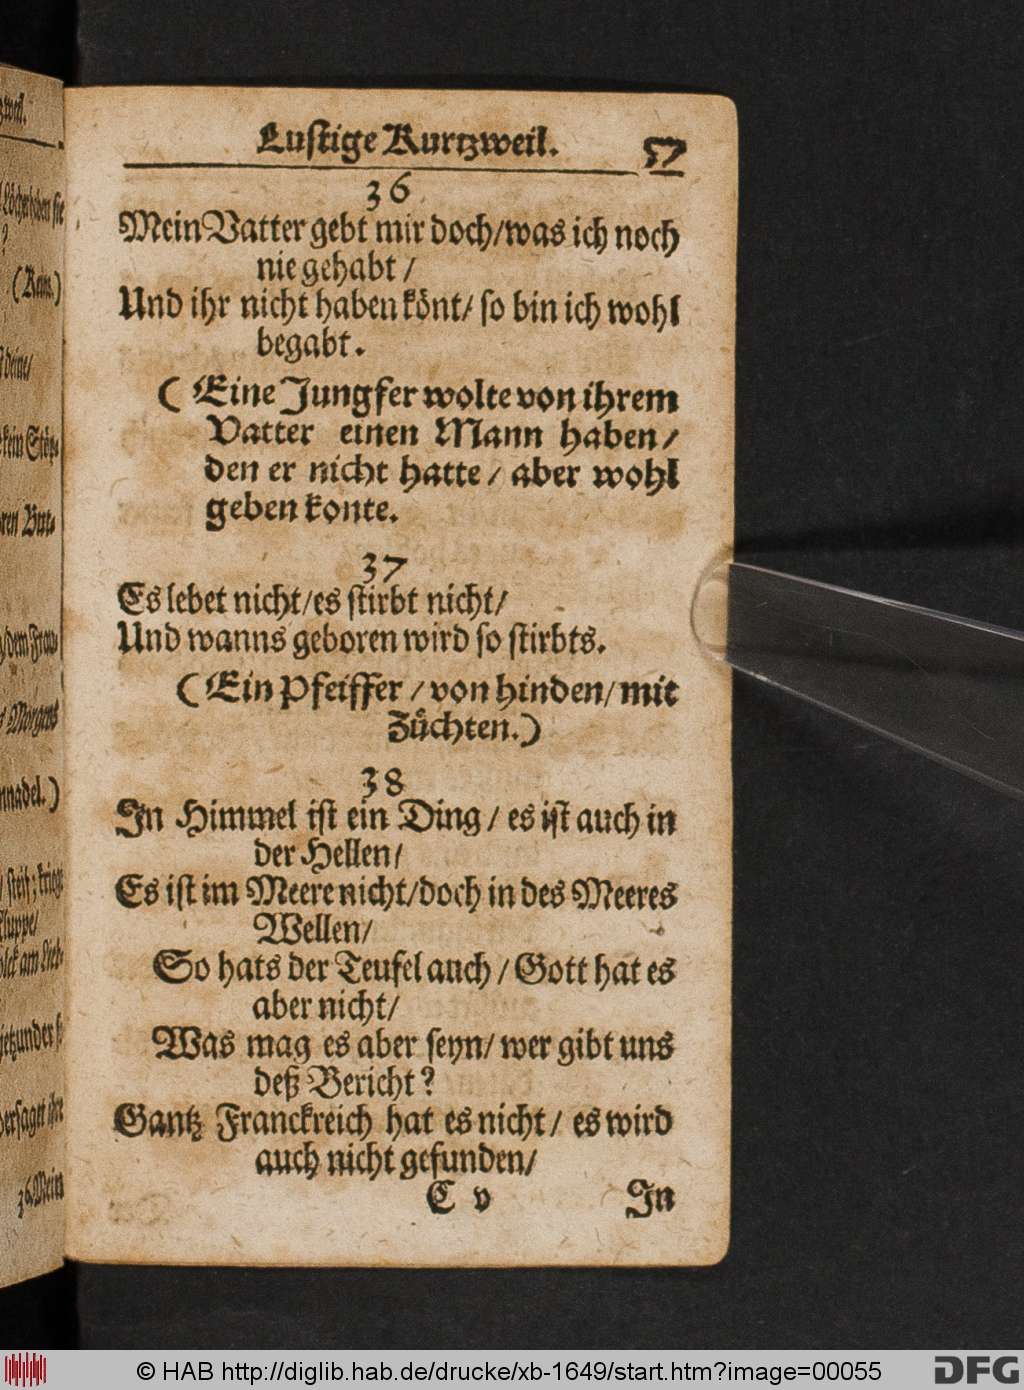 Lustige Kurtzweil. 57
36
Mein Vatter gebt mir doch/was ich noch
nie gehabt /
Und ihr nicht haben könt/ so bin ich wohl
begabt.
( Eine Jungfer wolte von ihrem
Vatter einen Mann haben/
den er nicht hatte / aber wohl
geben konte.
37
Es lebet nicht/es stirbt nicht/
Und wanns geboren wird so stirbts.
( Ein Pfeiffer /von hinden/ mit
Züchten.)
38
In Himmel ist ein Ding / es ist auch in
der Hellen/
Es ist im Meere nicht/doch in des Meeres
Wellen/
So hats der Teufel auch / Gott hat es
aber nicht/
Was mag es aber seyn/ wer gibt uns
deß Bericht?
Gantz Franckreich hat es nicht / es wird
auch nicht gefunden/
C v In
(Rem.)
deine/
kein
/dem
/ Morgens
nnadel.)
luppe/
36. Mein
© HAB http://diglib.hab.de/drucke/xb-1649/start.htm?image=00055
DFG